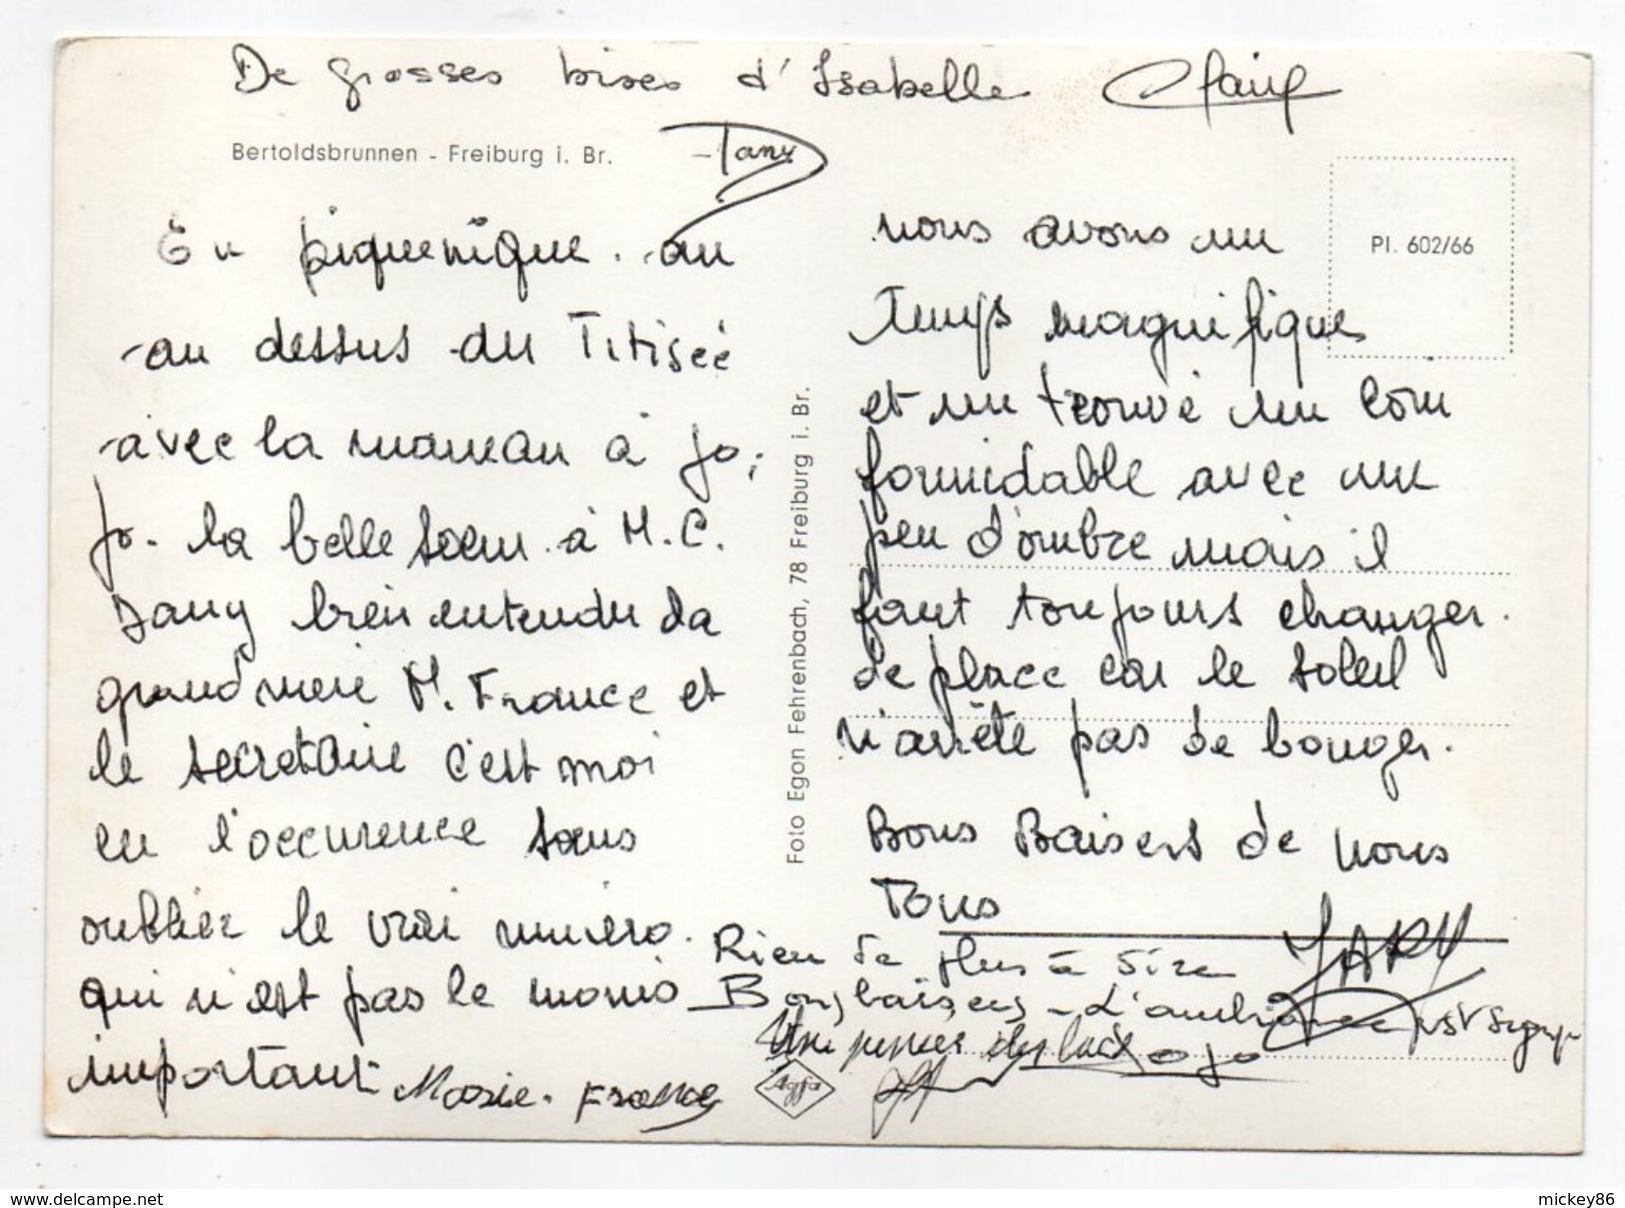 De grosses bises d'Isabelle Claire
Bertoldsbrunnen - Freiburg i. Br.
Dany
En piquenique. au
au dessus du Titisée
avec la maman à Jo,
Jo. la belle soeur à M.C.
Dany bien entendu sa
grand mère M. France et
le secretaire c'est moi
en l'occurence sans
oublier le vrai numéro.
qui n'est pas le moins
important Marie-France
Foto Egon Fehrenbach, 78 Freiburg i. Br.
Pl. 602/66
nous avons un
temps magnifique
et un trouvé un coin
formidable avec un
peu d'ombre mais il
faut toujours changer.
de place car le soleil
n'arrête pas de bouger.
Bons Baisers de nous
Tous
Rien de plus à dire
Bons baisers - L'ambiance est
Une pensée du lac Jojo
Agfa
www.delcampe.net
mickey86